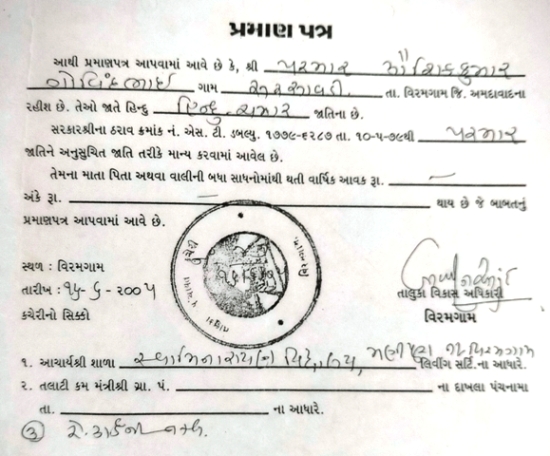 પ્રમાણ પત્ર
આથી પ્રમાણપત્ર આપવામાં આવે છે કે, શ્રી પરમાર કૌશિકકુમાર
ગોવિંદભાઇ ગામ તા. વિરમગામ જિ. અમદાવાદના
રહીશ છે. તેઓ જાતે હિન્દુ હિન્દુ ચમાર જાતિના છે.
સરકારશ્રીના ઠરાવ ક્રમાંક નં. એસ. ટી. ડબલ્યુ. ૧૭૭૯-૬૨૮૭ તા. ૧૦-૫-૭૯થી પરમાર
જાતિને અનુસુચિત જાતિ તરીકે માન્ય કરવામાં આવેલ છે.
તેમના માતા પિતા અથવા વાલીની બધા સાધનોમાંથી થતી વાર્ષિક આવક રૂા. —
અંકે રૂા. — થાય છે જે બાબતનું
પ્રમાણપત્ર આપવામાં આવે છે.
સ્થળ : વિરમગામ
તારીખ : ૧૫-૬-૨૦૦૫
તાલુકા વિકાસ અધિકારી
કચેરીનો સિક્કો
વિરમગામ
૧. આચાર્યશ્રી શાળા સ્વામિનારાયણ લિવીંગ સર્ટિ.ના આધારે.
૨. તલાટી કમ મંત્રીશ્રી ગ્રા. પં. ના દાખલા પંચનામા
તા. ના આધારે.
૩ રે. કાર્ડની નકલ.